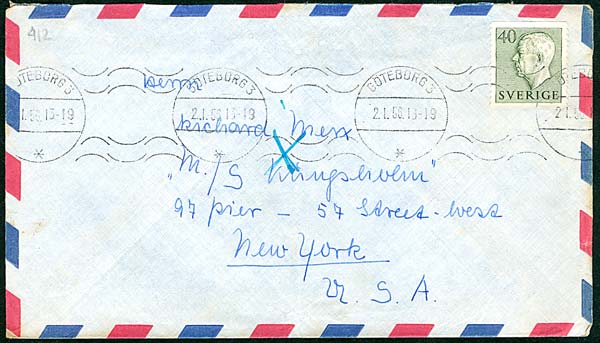 412
40
SVERIGE
GÖTEBORG 3
2.1.56.13-19
GÖTEBORG 3
2.1.56.13-19
GÖTEBORG 3
2.1.56.13-19
Herrn
Richard Merx
"M./S Kungsholm"
97 pier – 57 Street-West
New York
U. S. A.